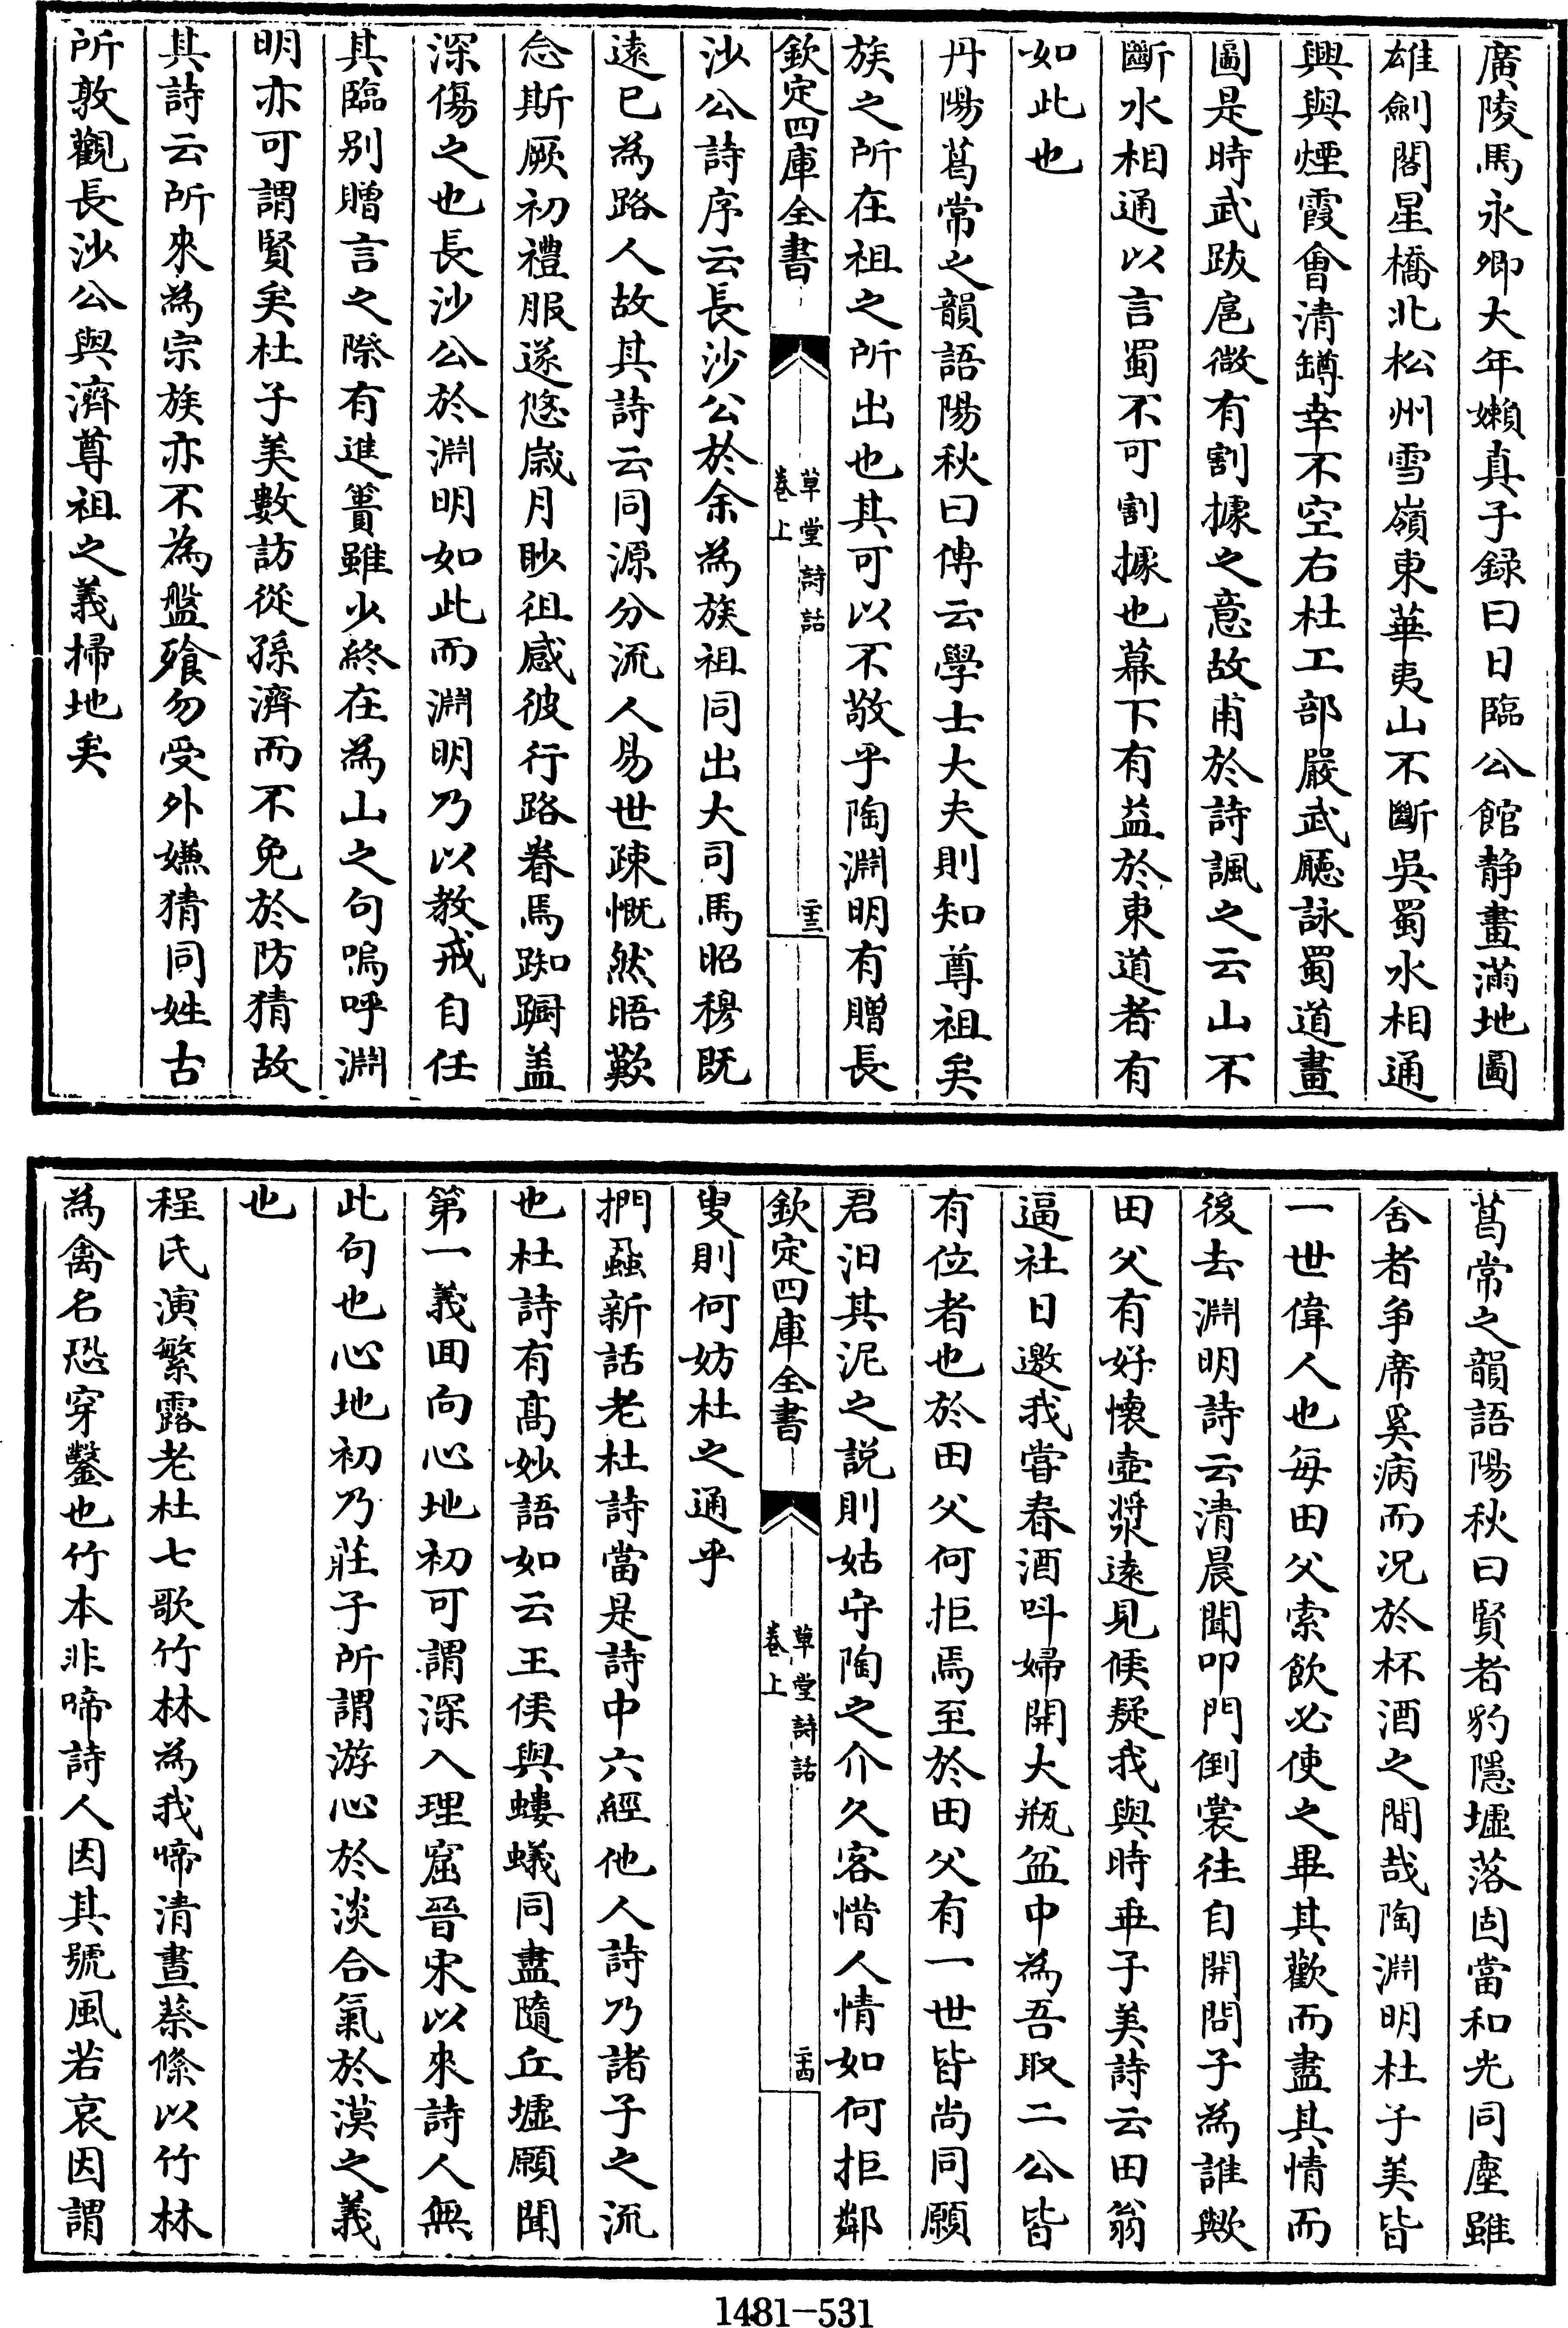 廣陵馬永卿大年嬾真子録曰日臨公館静畫滿地圖
雄劍閣星橋北松州雪嶺東華夷山不斷吳蜀水相通
興與煙霞會清罇幸不空右杜工部嚴武廳詠蜀道畫
圖是時武跋扈微有割據之意故甫於詩諷之云山不
斷水相通以言蜀不可割據也幕下有益於東道者有
如此也
丹陽葛常之韻語陽秋曰傳云學士大夫則知尊祖矣
族之所在祖之所出也其可以不敬乎陶淵明有贈長
欽定四庫全書
草堂詩話
卷上
二十三
沙公詩序云長沙公於余為族祖同出大司馬昭穆既
逺已為路人故其詩云同源分流人易世疎慨然晤歎
念斯厥初禮服遂悠嵗月眇徂感彼行路眷焉踟躕盖
深傷之也長沙公於淵明如此而淵明乃以教戒自任
其臨别贈言之際有進簣雖少終在為山之句嗚呼淵
明亦可謂賢矣杜子美數訪從孫濟而不免於防猜故
其詩云所來為宗族亦不為盤飱勿受外嫌猜同姓古
所敦觀長沙公與濟尊祖之義掃地矣
葛常之韻語陽秋曰賢者豹隱墟落固當和光同塵雖
舍者争席奚病而况於杯酒之間哉陶淵明杜子美皆
一世偉人也每田父索飲必使之畢其歡而盡其情而
後去淵明詩云清晨聞叩門倒裳往自開問子為誰歟
田父有好懐壺漿逺見候疑我與時乖子美詩云田翁
逼社日邀我嘗春酒呌婦開大瓶盆中為吾取二公皆
有位者也於田父何拒焉至於田父有一世皆尚同願
君汨其泥之説則姑守陶之介久客惜人情如何拒鄰
欽定四庫全書
草堂詩話
卷上
二十四
叟則何妨杜之通乎
捫蝨新話老杜詩當是詩中六經他人詩乃諸子之流
也杜詩有髙妙語如云王侯與螻蟻同盡隨丘墟願聞
第一義囬向心地初可謂深入理窟晉宋以來詩人無
此句也心地初乃莊子所謂游心於淡合氣於漠之義
也
程氏演繁露老杜七歌竹林為我啼清晝蔡絛以竹林
為禽名恐穿鑿也竹本非啼詩人因其號風若哀因謂
1481-531